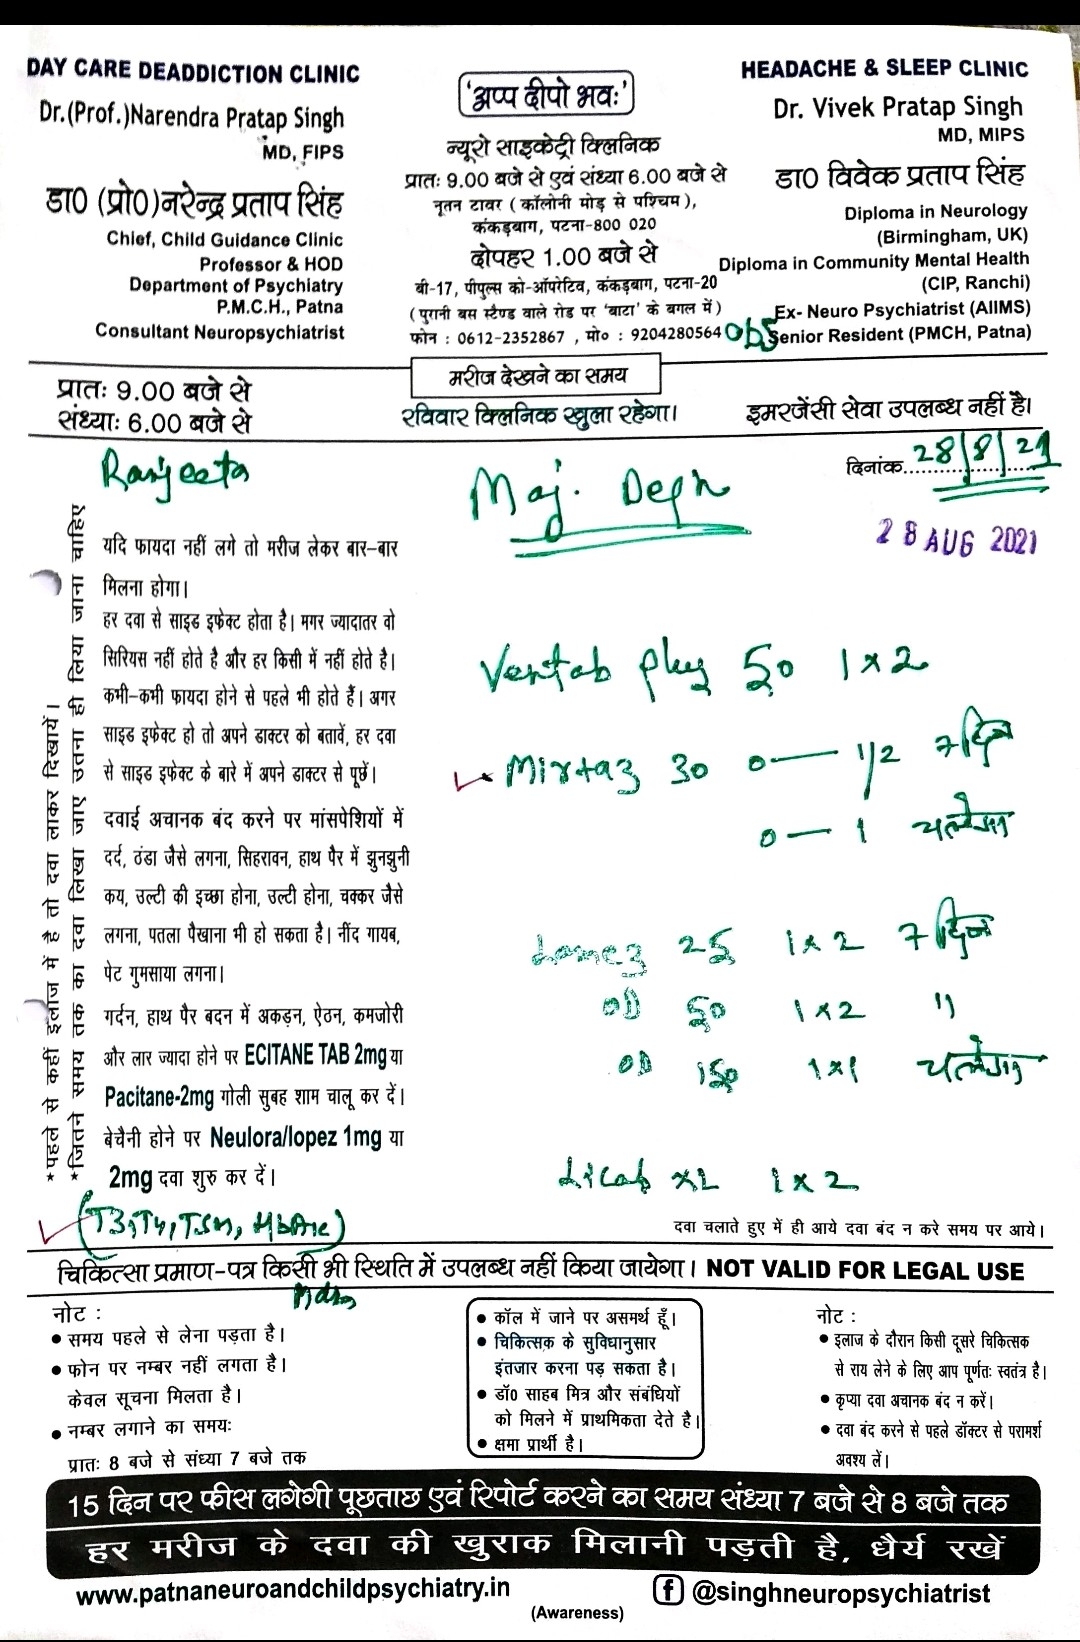 DAY CARE DEADDICTION CLINIC
Dr.(Prof.)Narendra Pratap Singh
MD, FIPS
डा0 (प्रो0)नरेन्द्र प्रताप सिंह
Chief, Child Guidance Clinic
Professor & HOD
Department of Psychiatry
P.M.C.H., Patna
Consultant Neuropsychiatrist
'अप्प दीपो भवः'
न्यूरो साइकेट्री क्लिनिक
प्रातः 9.00 बजे से एवं संध्या 6.00 बजे से
नूतन टावर ( कॉलोनी मोड़ से पश्चिम ),
कंकड़बाग, पटना-800 020
दोपहर 1.00 बजे से
बी-17, पीपुल्स को-ऑपरेटिव, कंकड़बाग, पटना-20
( पुरानी बस स्टैण्ड वाले रोड पर 'बाटा' के बगल में )
फोन : 0612-2352867 , मो० : 9204280564
HEADACHE & SLEEP CLINIC
Dr. Vivek Pratap Singh
MD, MIPS
डा0 विवेक प्रताप सिंह
Diploma in Neurology
(Birmingham, UK)
Diploma in Community Mental Health
(CIP, Ranchi)
Ex- Neuro Psychiatrist (AIIMS)
Senior Resident (PMCH, Patna)
प्रातः 9.00 बजे से
संध्याः 6.00 बजे से
मरीज देखने का समय
रविवार क्लिनिक खुला रहेगा।
इमरजेंसी सेवा उपलब्ध नहीं है।
Ranjeeta
Maj. Depn
दिनांक 28/8/21
28 AUG 2021
*पहले से कहीं इलाज में है तो दवा लाकर दिखायें।
*जितने समय तक का दवा लिखा जाए उतना ही लिया जाना चाहिए
यदि फायदा नहीं लगे तो मरीज लेकर बार-बार
मिलना होगा।
हर दवा से साइड इफेक्ट होता है। मगर ज्यादातर वो
सिरियस नहीं होते है और हर किसी में नहीं होते है।
कभी-कभी फायदा होने से पहले भी होते हैं। अगर
साइड इफेक्ट हो तो अपने डाक्टर को बतावें, हर दवा
से साइड इफेक्ट के बारे में अपने डाक्टर से पूछें।
दवाई अचानक बंद करने पर मांसपेशियों में
दर्द, ठंडा जैसे लगना, सिहरावन, हाथ पैर में झुनझुनी
कय, उल्टी की इच्छा होना, उल्टी होना, चक्कर जैसे
लगना, पतला पैखाना भी हो सकता है। नींद गायब,
पेट गुमसाया लगना।
गर्दन, हाथ पैर बदन में अकड़न, ऐंठन, कमजोरी
और लार ज्यादा होने पर ECITANE TAB 2mg या
Pacitane-2mg गोली सुबह शाम चालू कर दें।
बेचैनी होने पर Neulora/lopez 1mg या
2mg दवा शुरु कर दें।
Ventab plus 50 1 x 2
Mirtaz 30 0 — 1/2 7 दिन
0 — 1 चलेगा
Lamez 25 1 x 2 7 दिन
OD 50 1 x 2 "
OD 150 1 x 1 चलेगा
Licab XL 1 x 2
(T3, T4, TSH, HbA1c)
दवा चलाते हुए में ही आये दवा बंद न करे समय पर आये।
चिकित्सा प्रमाण-पत्र किसी भी स्थिति में उपलब्ध नहीं किया जायेगा। NOT VALID FOR LEGAL USE
नोट :
● समय पहले से लेना पड़ता है।
● फोन पर नम्बर नहीं लगता है।
केवल सूचना मिलता है।
● नम्बर लगाने का समयः
प्रातः 8 बजे से संध्या 7 बजे तक
● कॉल में जाने पर असमर्थ हूँ।
● चिकित्सक के सुविधानुसार
इंतजार करना पड़ सकता है।
● डॉ0 साहब मित्र और संबंधियों
को मिलने में प्राथमिकता देते है।
● क्षमा प्रार्थी है।
नोट :
● इलाज के दौरान किसी दूसरे चिकित्सक
से राय लेने के लिए आप पूर्णतः स्वतंत्र है।
● कृप्या दवा अचानक बंद न करें।
● दवा बंद करने से पहले डॉक्टर से परामर्श
अवश्य लें।
15 दिन पर फीस लगेगी पूछताछ एवं रिपोर्ट करने का समय संध्या 7 बजे से 8 बजे तक
हर मरीज के दवा की खुराक मिलानी पड़ती है, धैर्य रखें
www.patnaneuroandchildpsychiatry.in
f @singhneuropsychiatrist
(Awareness)